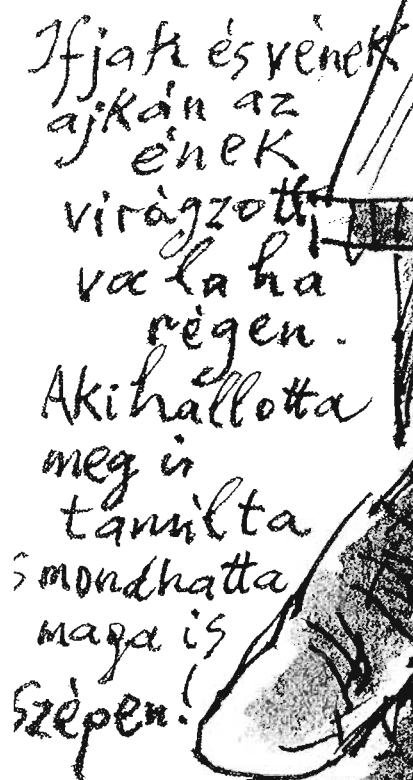 Ifjak és vének
ajkán az
ének
virágzott
valaha
régen.
Aki hallotta
meg is
tanulta
s mondhatta
maga is
szépen!